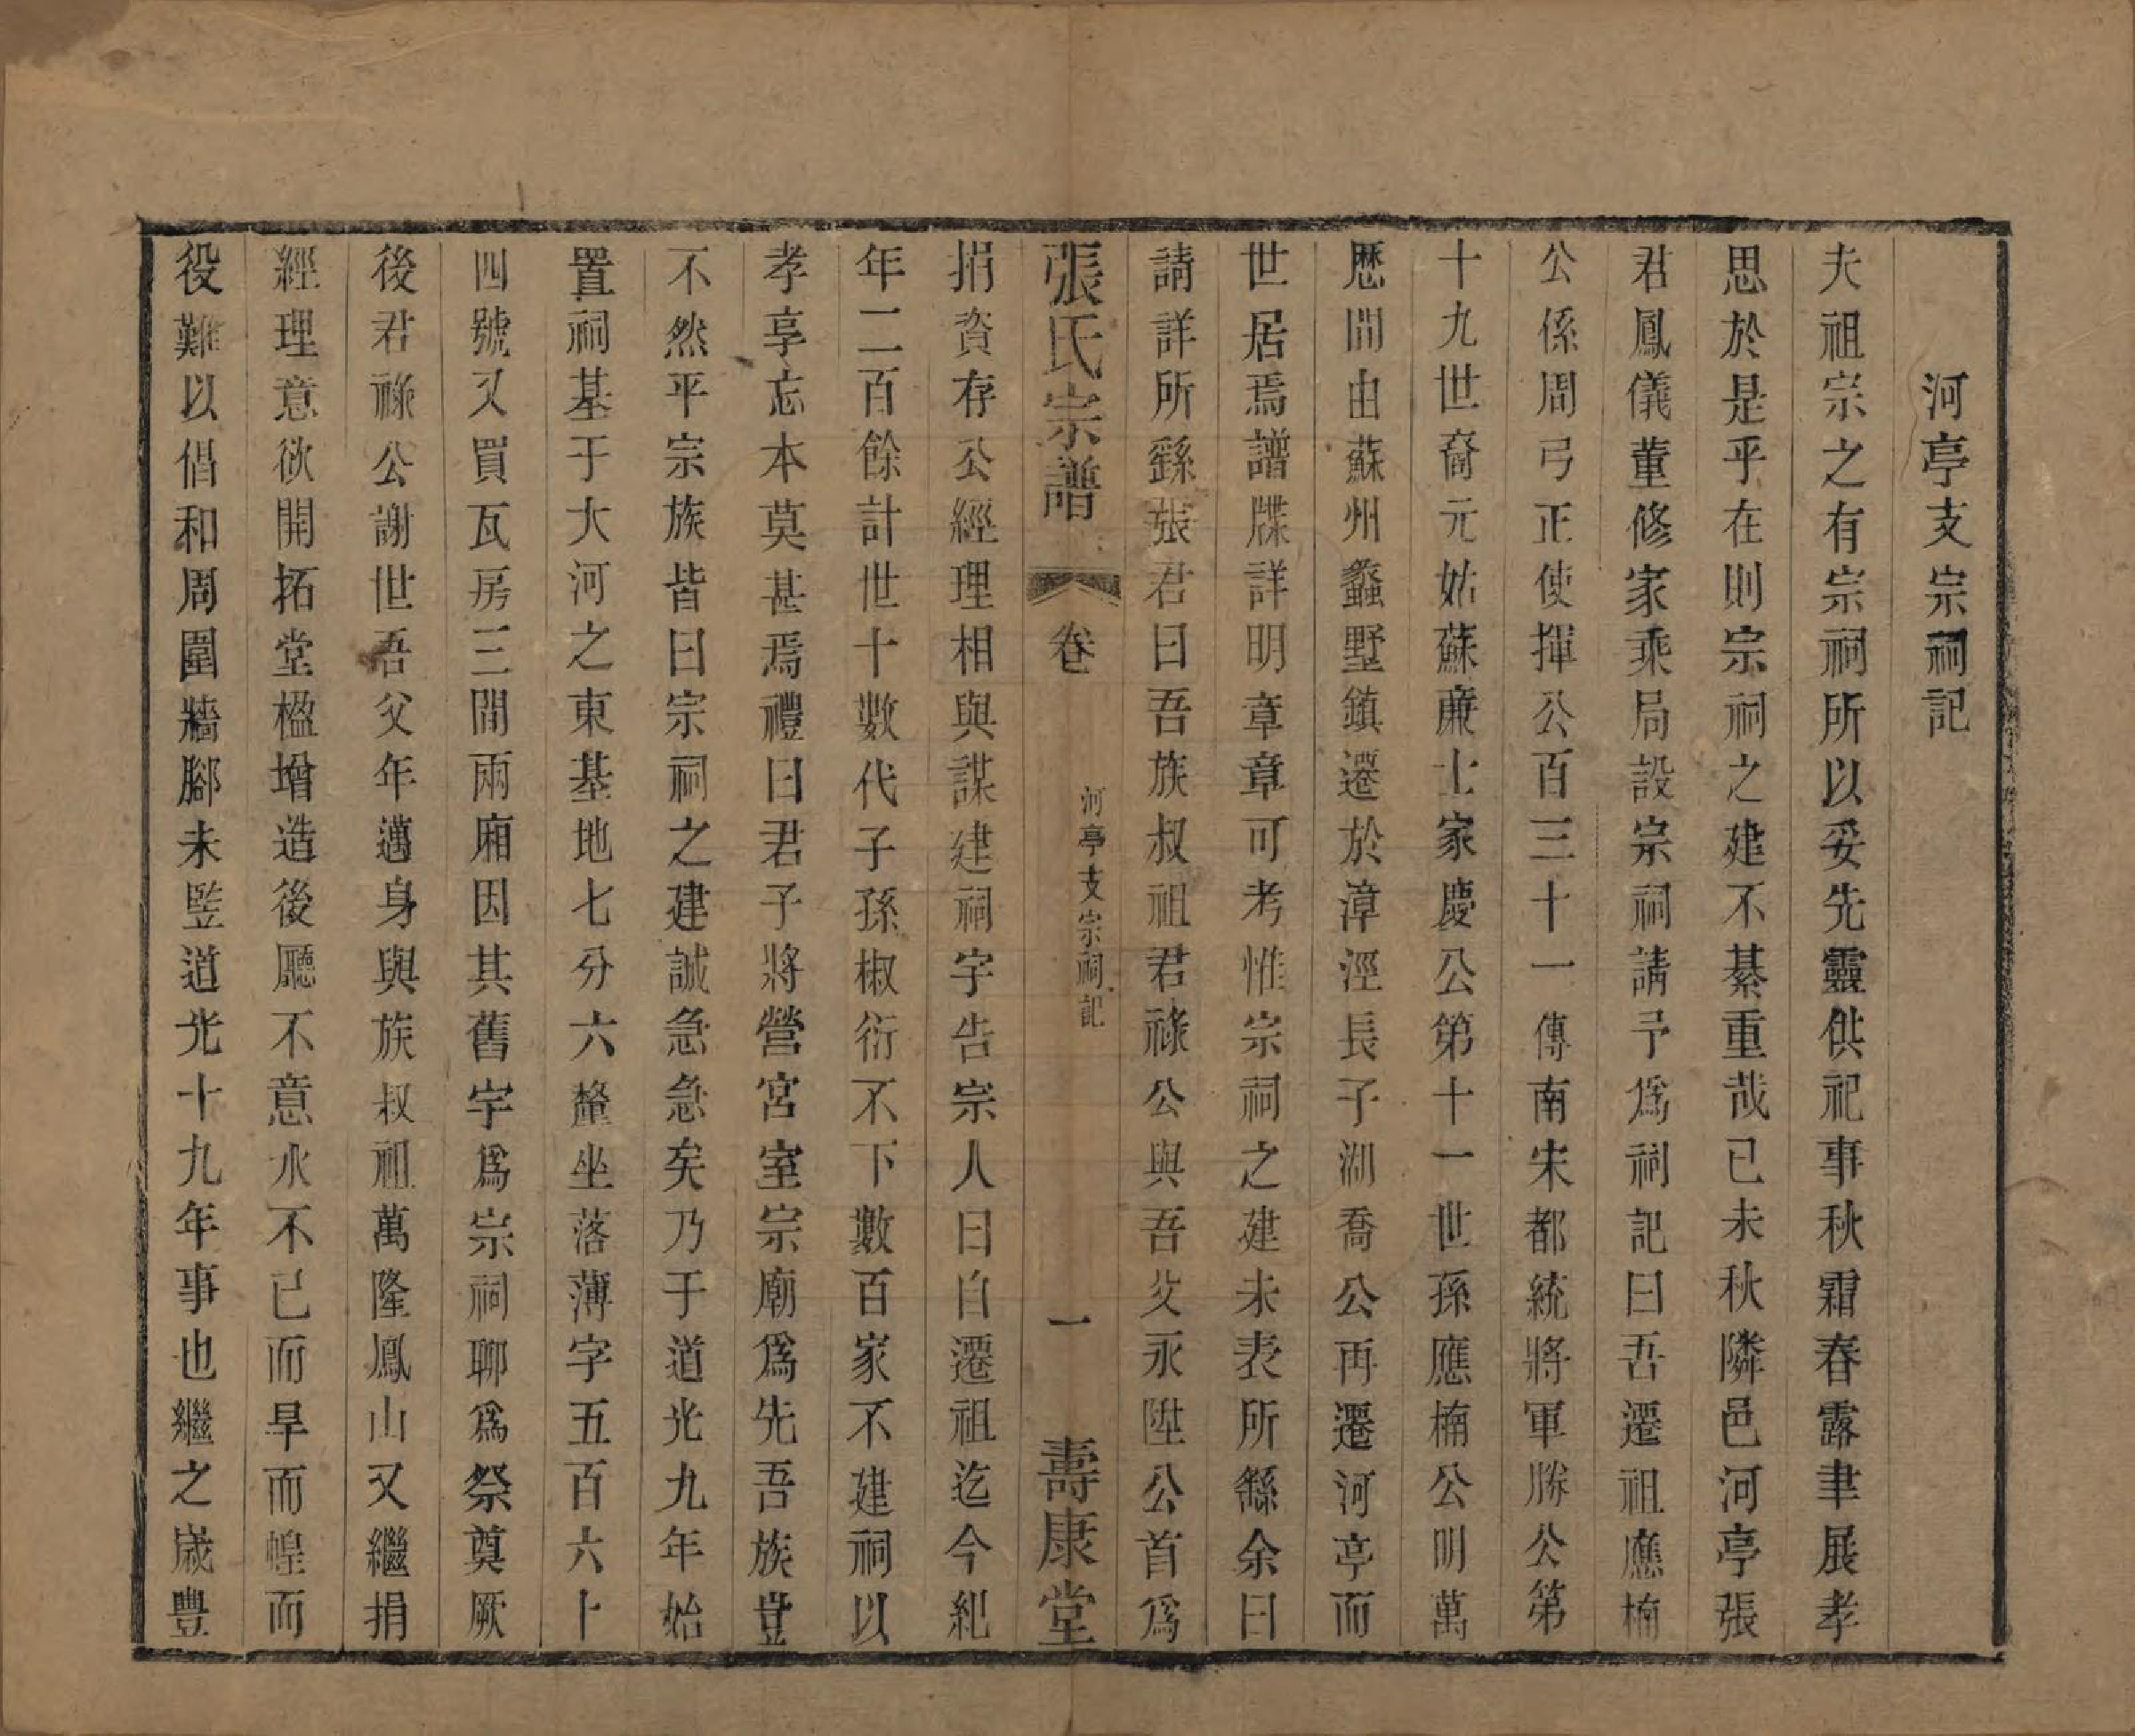 河亭支宗祠記
夫祖宗之有宗祠所以妥先靈供祀事秋霜春露聿展孝
思於是乎在則宗祠之建不綦重哉已未秋隣邑河亭張
君鳳儀董修家乘局設宗祠請予爲祠記曰吾遷祖應楠
公係周弓正使揮公百三十一傳南宋都統將軍勝公第
十九世裔元姑蘇廉士家慶公第十一世孫應楠公明萬
歷間由蘇州蠡墅鎮遷於漳涇長子湖喬公再遷河亭而
世居焉譜牒詳明章章可考惟宗祠之建未表所繇余曰
請詳所繇張君曰吾族叔祖君祿公與吾父永陞公首爲
張氏宗譜
卷
河亭支宗祠記
一
壽康堂
捐資存公經理相與謀建祠宇告宗人曰自遷祖迄今紀
年二百餘計世十數代子孫椒衍不下數百家不建祠以
孝享忘本莫甚焉禮曰君子將營宮室宗廟爲先吾族豈
不然乎宗族皆曰宗祠之建誠急急矣乃于道光九年始
置祠基于大河之東基地七分六釐坐落薄字五百六十
四號又買瓦房三間兩廂因其舊宇爲宗祠聊爲祭奠厥
後君祿公謝世吾父年邁身與族叔祖萬隆鳳山又繼捐
經理意欲開拓堂楹增造後廳不意水不已而旱而蝗而
役難以倡和周圍牆腳未竪道光十九年事也繼之歲豐